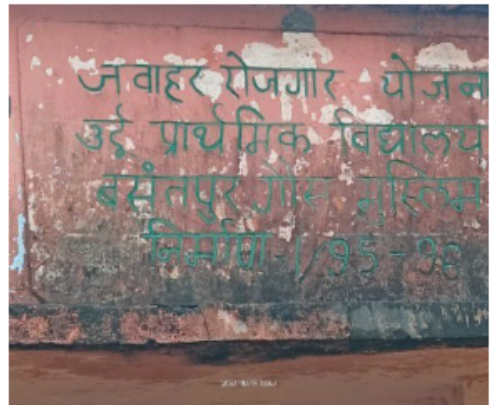 जवाहर रोजगार योजना
उर्दू प्राथमिक विद्यालय
बसंतपुर मुस्लिम
निर्माण - 1/95-96